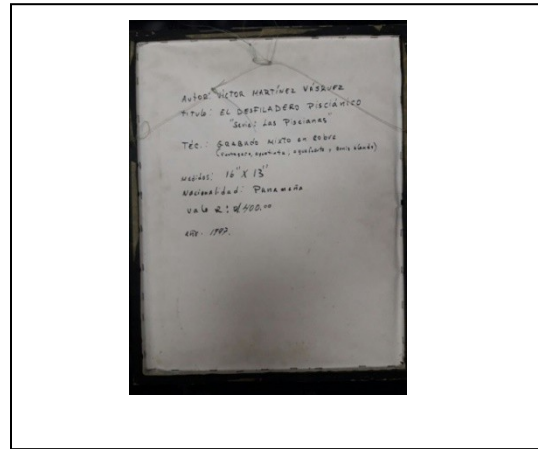 Autor: VÍCTOR MARTÍNEZ VÁSQUEZ
Título: EL DESFILADERO PISCIÁNICO
"Serie: Las Piscianas"
Téc.: GRABADO MIXTO en cobre
(aguatinta, aguafuerte y barniz blando)
Medidas: 16" X 13"
Nacionalidad: Panameña
Valor: 400.00
Año: 1997.